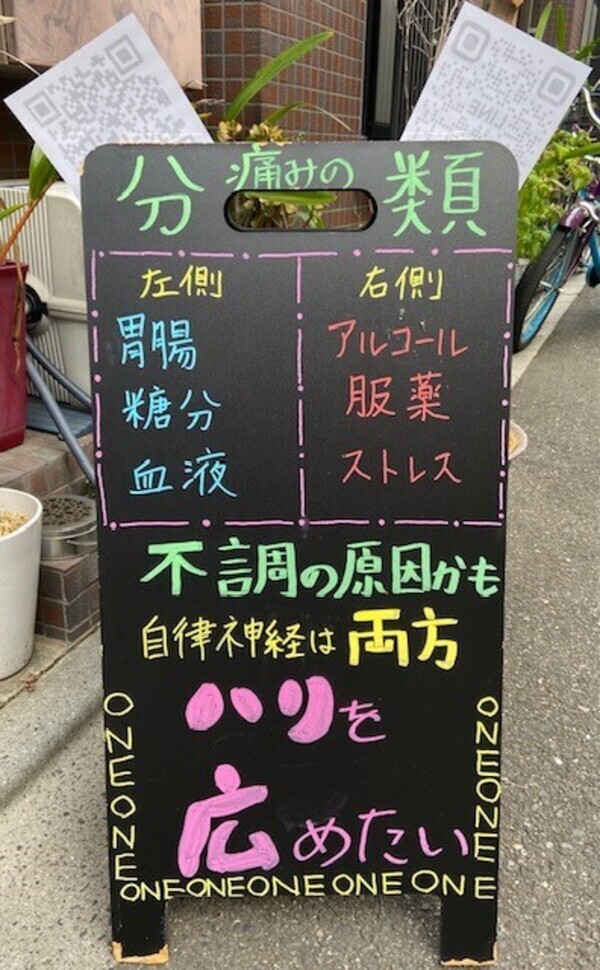 痛みの
分類
左側 右側
胃腸 アルコール
糖分 服薬
血液 ストレス
不調の原因かも
自律神経は両方
ハリを
広めたい
ONEONE
ONEONE
ONE-ONEONEONEONEONE
LINE